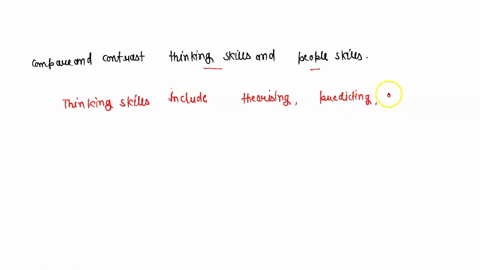 compare and contrast thinking skills and people skills.
Thinking skills include theorising, predicting,